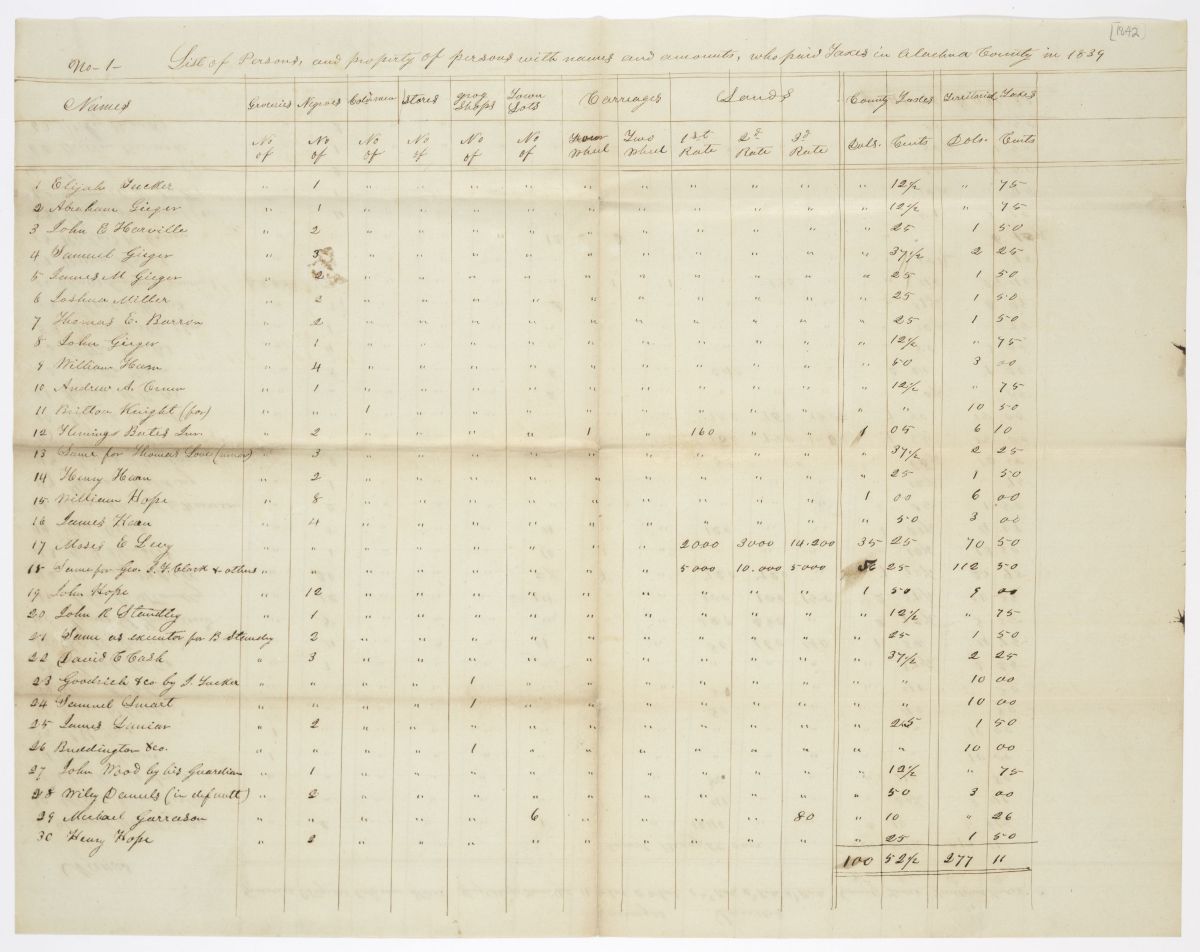 [1842]
No- 1- List of Persons, and property of persons with names and amounts, who paid Taxes in Alachua County in 1839
Names Groceries Negroes Cold men Stores grog Shops Town Lots Carriages Lands County Taxes Territorial Taxes
No of No of No of No of No of No of Four Wheel Two Wheel 1st Rate 2d Rate 3d Rate Dols. Cents Dols. Cents
1 Elijah Tucker " 1 " " " " " " " " " " 12½ " 75
2 Abraham Gieger " 1 " " " " " " " " " " 12½ " 75
3 John E Harville " 2 " " " " " " " " " " 25 1 50
4 Samuel Gieger " 3 " " " " " " " " " " 37½ 2 25
5 James M Gieger " 2 " " " " " " " " " " 25 1 50
6 Joshua Miller " 2 " " " " " " " " " " 25 1 50
7 Thomas E. Barron " 2 " " " " " " " " " " 25 1 50
8 John Gieger " 1 " " " " " " " " " " 12½ " 75
9 William Harn " 4 " " " " " " " " " " 50 3 00
10 Andrew A. " 1 " " " " " " " " " " 12½ " 75
11 Britton Knight (for) " " 1 " " " " " " " " " " 10 50
12 Flemings Bates Jnr. " 2 " " " " 1 " 160 " " 1 05 6 10
13 Same for Thomas Love (minor) " 3 " " " " " " " " " " 37½ 2 25
14 Henry Harn " 2 " " " " " " " " " " 25 1 50
15 William Hope " 8 " " " " " " " " " 1 00 6 00
16 James " 4 " " " " " " " " " " 50 3 00
17 Moses E Levy " " " " " " " " 2000 3000 14.200 35 25 70 50
18 Same for Geo. J. F. Clark & others " " " " " " " " 5000 10.000 5000 56 25 112 50
19 John Hope " 12 " " " " " " " " " 1 50 9 00
20 John R Standley " 1 " " " " " " " " " " 12½ " 75
21 Same as executor for B Standly " 2 " " " " " " " " " " 25 1 50
22 David C Cash " 3 " " " " " " " " " " 37½ 2 25
23 Goodrich & co by J. Tucker " " " " 1 " " " " " " " " 10 00
24 Samuel Smart " " " " 1 " " " " " " " " 10 00
25 James Laniar " 2 " " " " " " " " " " 25 1 50
26 Buddington & co. " " " " 1 " " " " " " " " 10 00
27 John Wood by his Guardian " 1 " " " " " " " " " " 12½ " 75
28 Wiley Daniels (in default) " 2 " " " " " " " " " " 50 3 00
29 Michael Garrason " " " " " 6 " " " " 80 " 10 " 26
30 Henry Hope " 2 " " " " " " " " " " 25 1 50
100 52½ 277 11